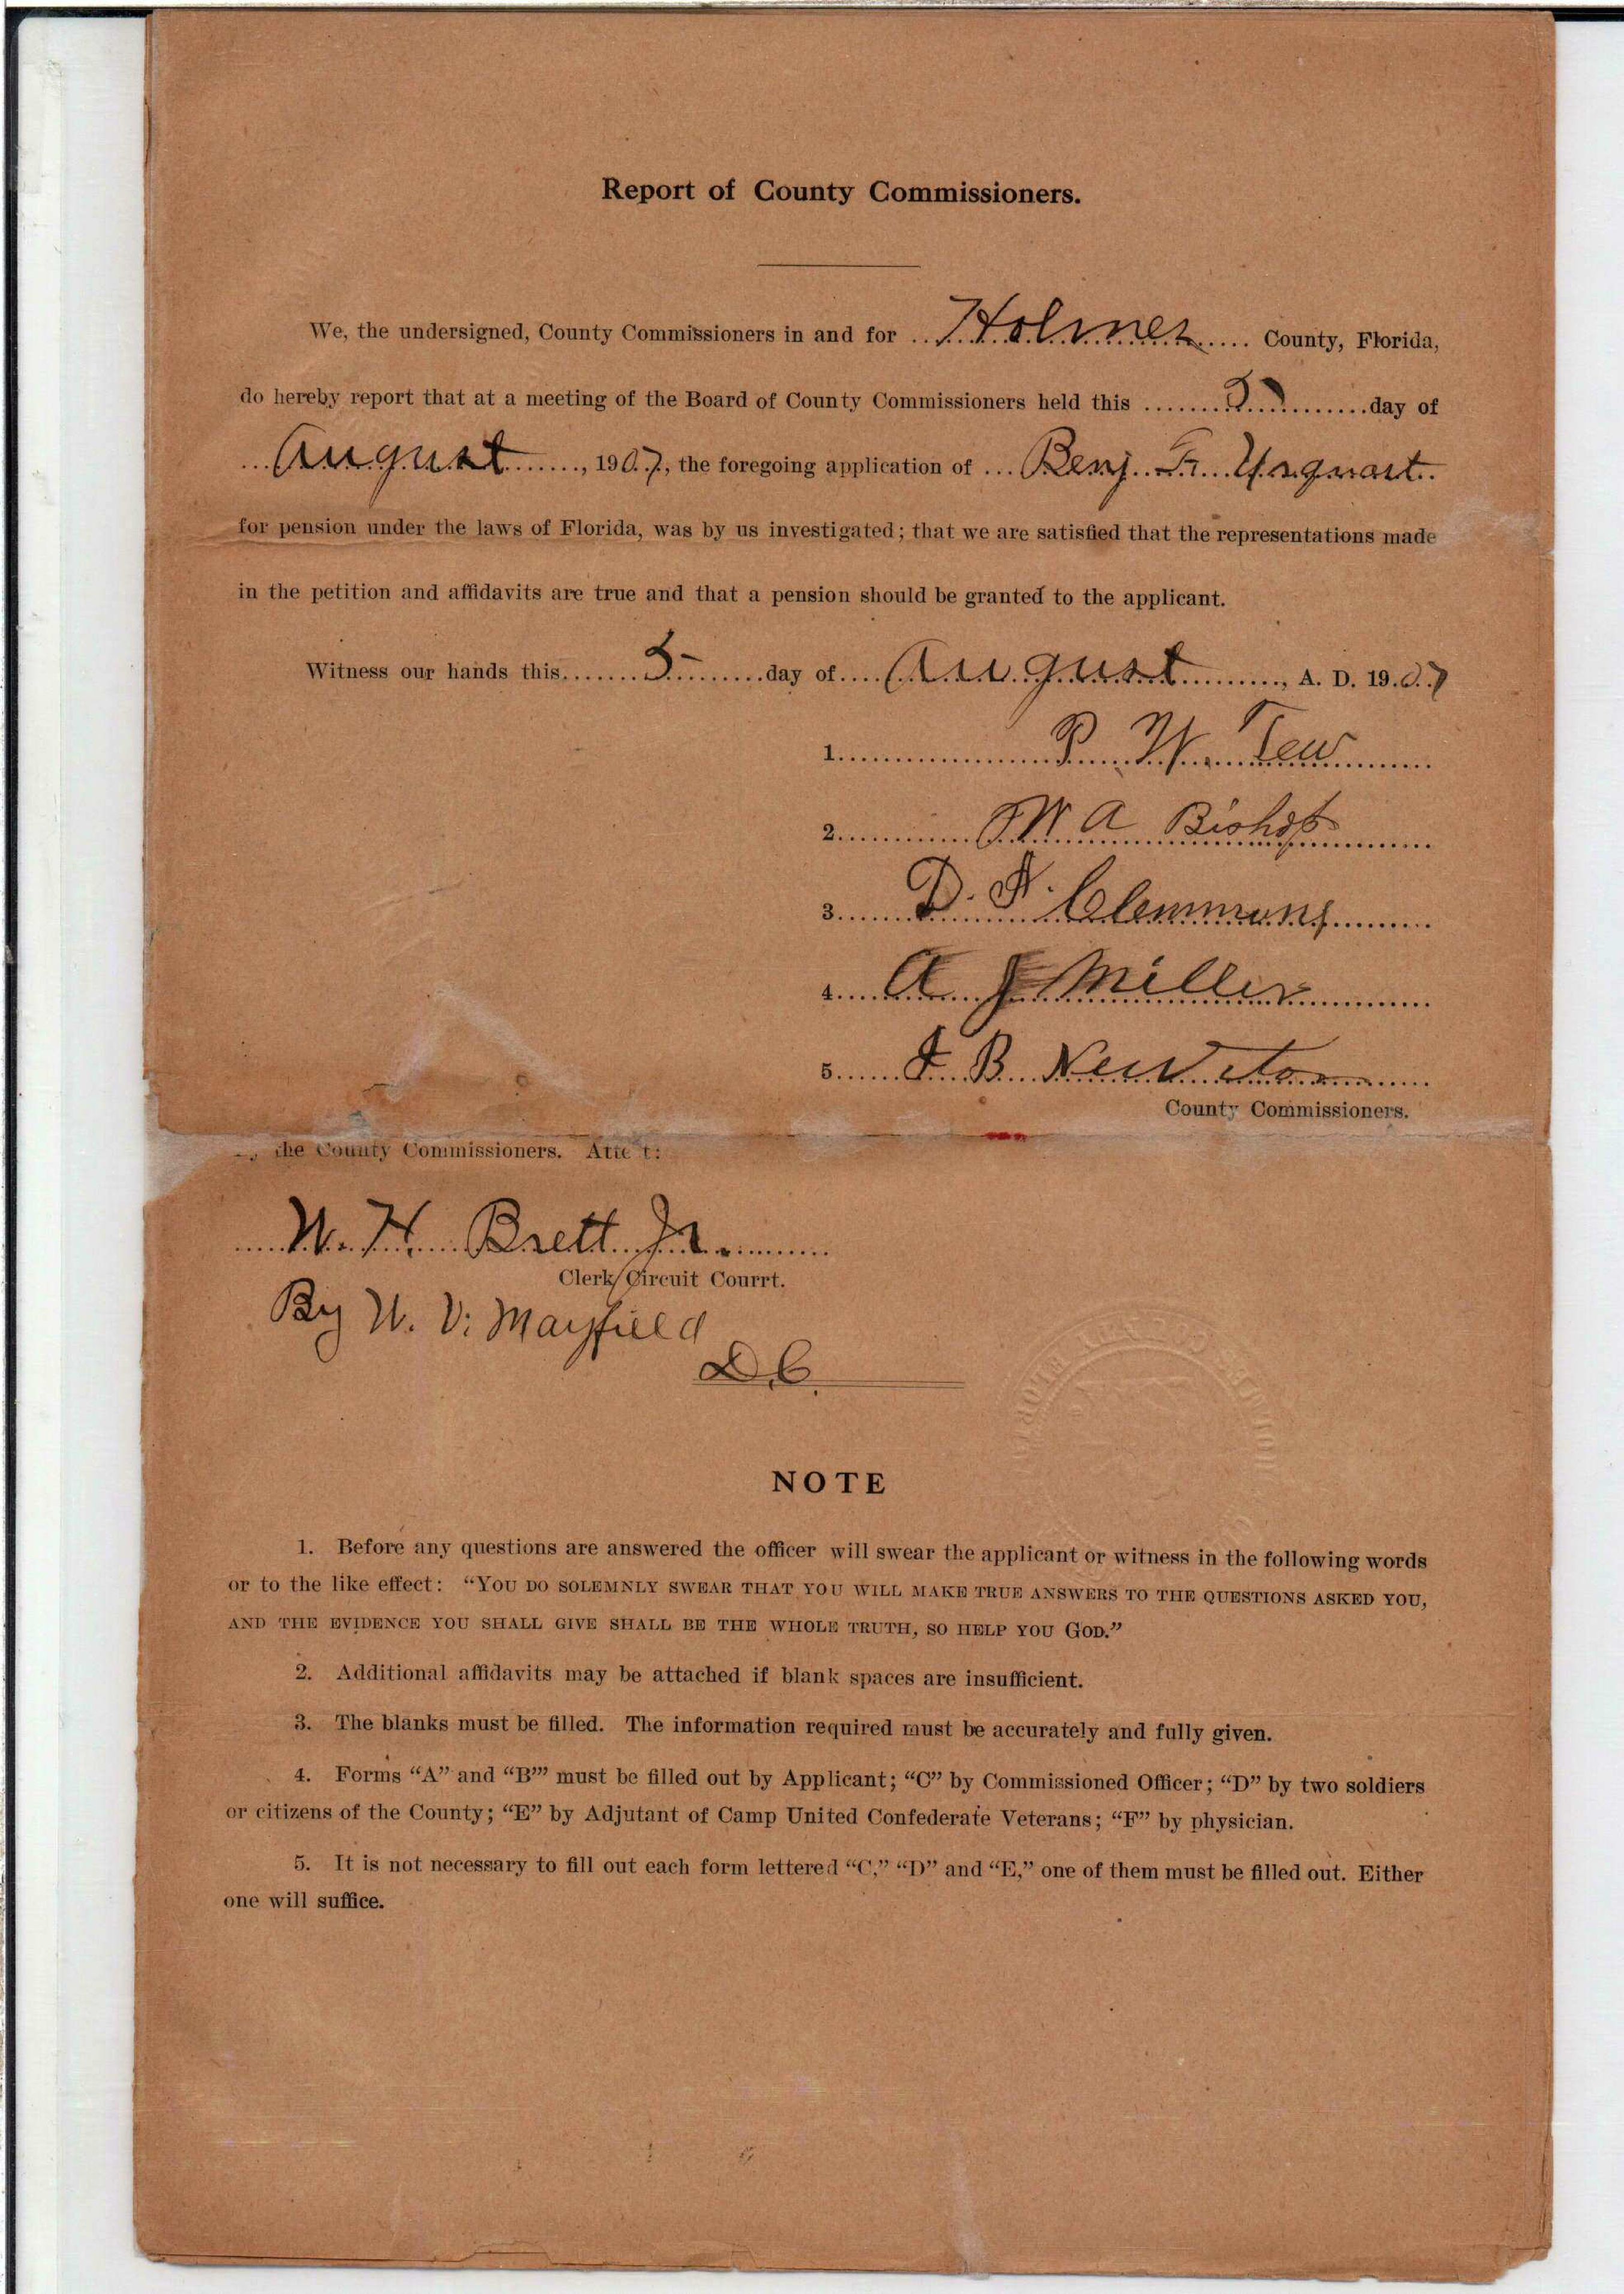 Report of County Commissioners.
We, the undersigned, County Commissioners in and for Holmes County, Florida,
do hereby report that at a meeting of the Board of County Commissioners held this 5 day of
August, 1907, the foregoing application of Benj. Fr. Urquart
for pension under the laws of Florida, was by us investigated; that we are satisfied that the representations made
in the petition and affidavits are true and that a pension should be granted to the applicant.
Witness our hands this 5 day of August, A. D. 1907
1. P. W. Tew
2. W A Bishop
3. D. N. Clemmons
4. A J Miller
5. J B Newton
County Commissioners.
the County Commissioners. Atte t:
W. H. Brett Jr.
Clerk Circuit Courrt.
By W. V. Mayfield
D.C.
NOTE
1. Before any questions are answered the officer will swear the applicant or witness in the following words
or to the like effect: “YOU DO SOLEMNLY SWEAR THAT YOU WILL MAKE TRUE ANSWERS TO THE QUESTIONS ASKED YOU,
AND THE EVIDENCE YOU SHALL GIVE SHALL BE THE WHOLE TRUTH, SO HELP YOU GOD.”
2. Additional affidavits may be attached if blank spaces are insufficient.
3. The blanks must be filled. The information required must be accurately and fully given.
4. Forms “A” and “B”’ must be filled out by Applicant; “C” by Commissioned Officer; “D” by two soldiers
or citizens of the County; “E” by Adjutant of Camp United Confederate Veterans; “F” by physician.
5. It is not necessary to fill out each form lettered “C,” “D” and “E,” one of them must be filled out. Either
one will suffice.